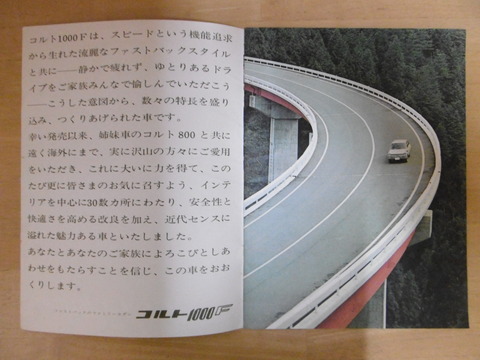 コルト1000Fは、スピードという機能追求
から生れた流麗なファストバックスタイル
と共に——静かで疲れず、ゆとりあるドラ
イブをご家族みんなで愉しんでいただこう
——こうした意図から、数々の特長を盛り
込み、つくりあげられた車です。
幸い発売以来、姉妹車のコルト800と共に
遠く海外にまで、実に沢山の方々にご愛用
をいただき、これに大いに力を得て、この
たび更に皆さまのお気に召すよう、インテ
リアを中心に30数カ所にわたり、安全性と
快適さを高める改良を加え、近代センスに
溢れた魅力ある車といたしました。
あなたとあなたのご家族によろこびとしあ
わせをもたらすことを信じ、この車をおお
くりします。
コルト1000F